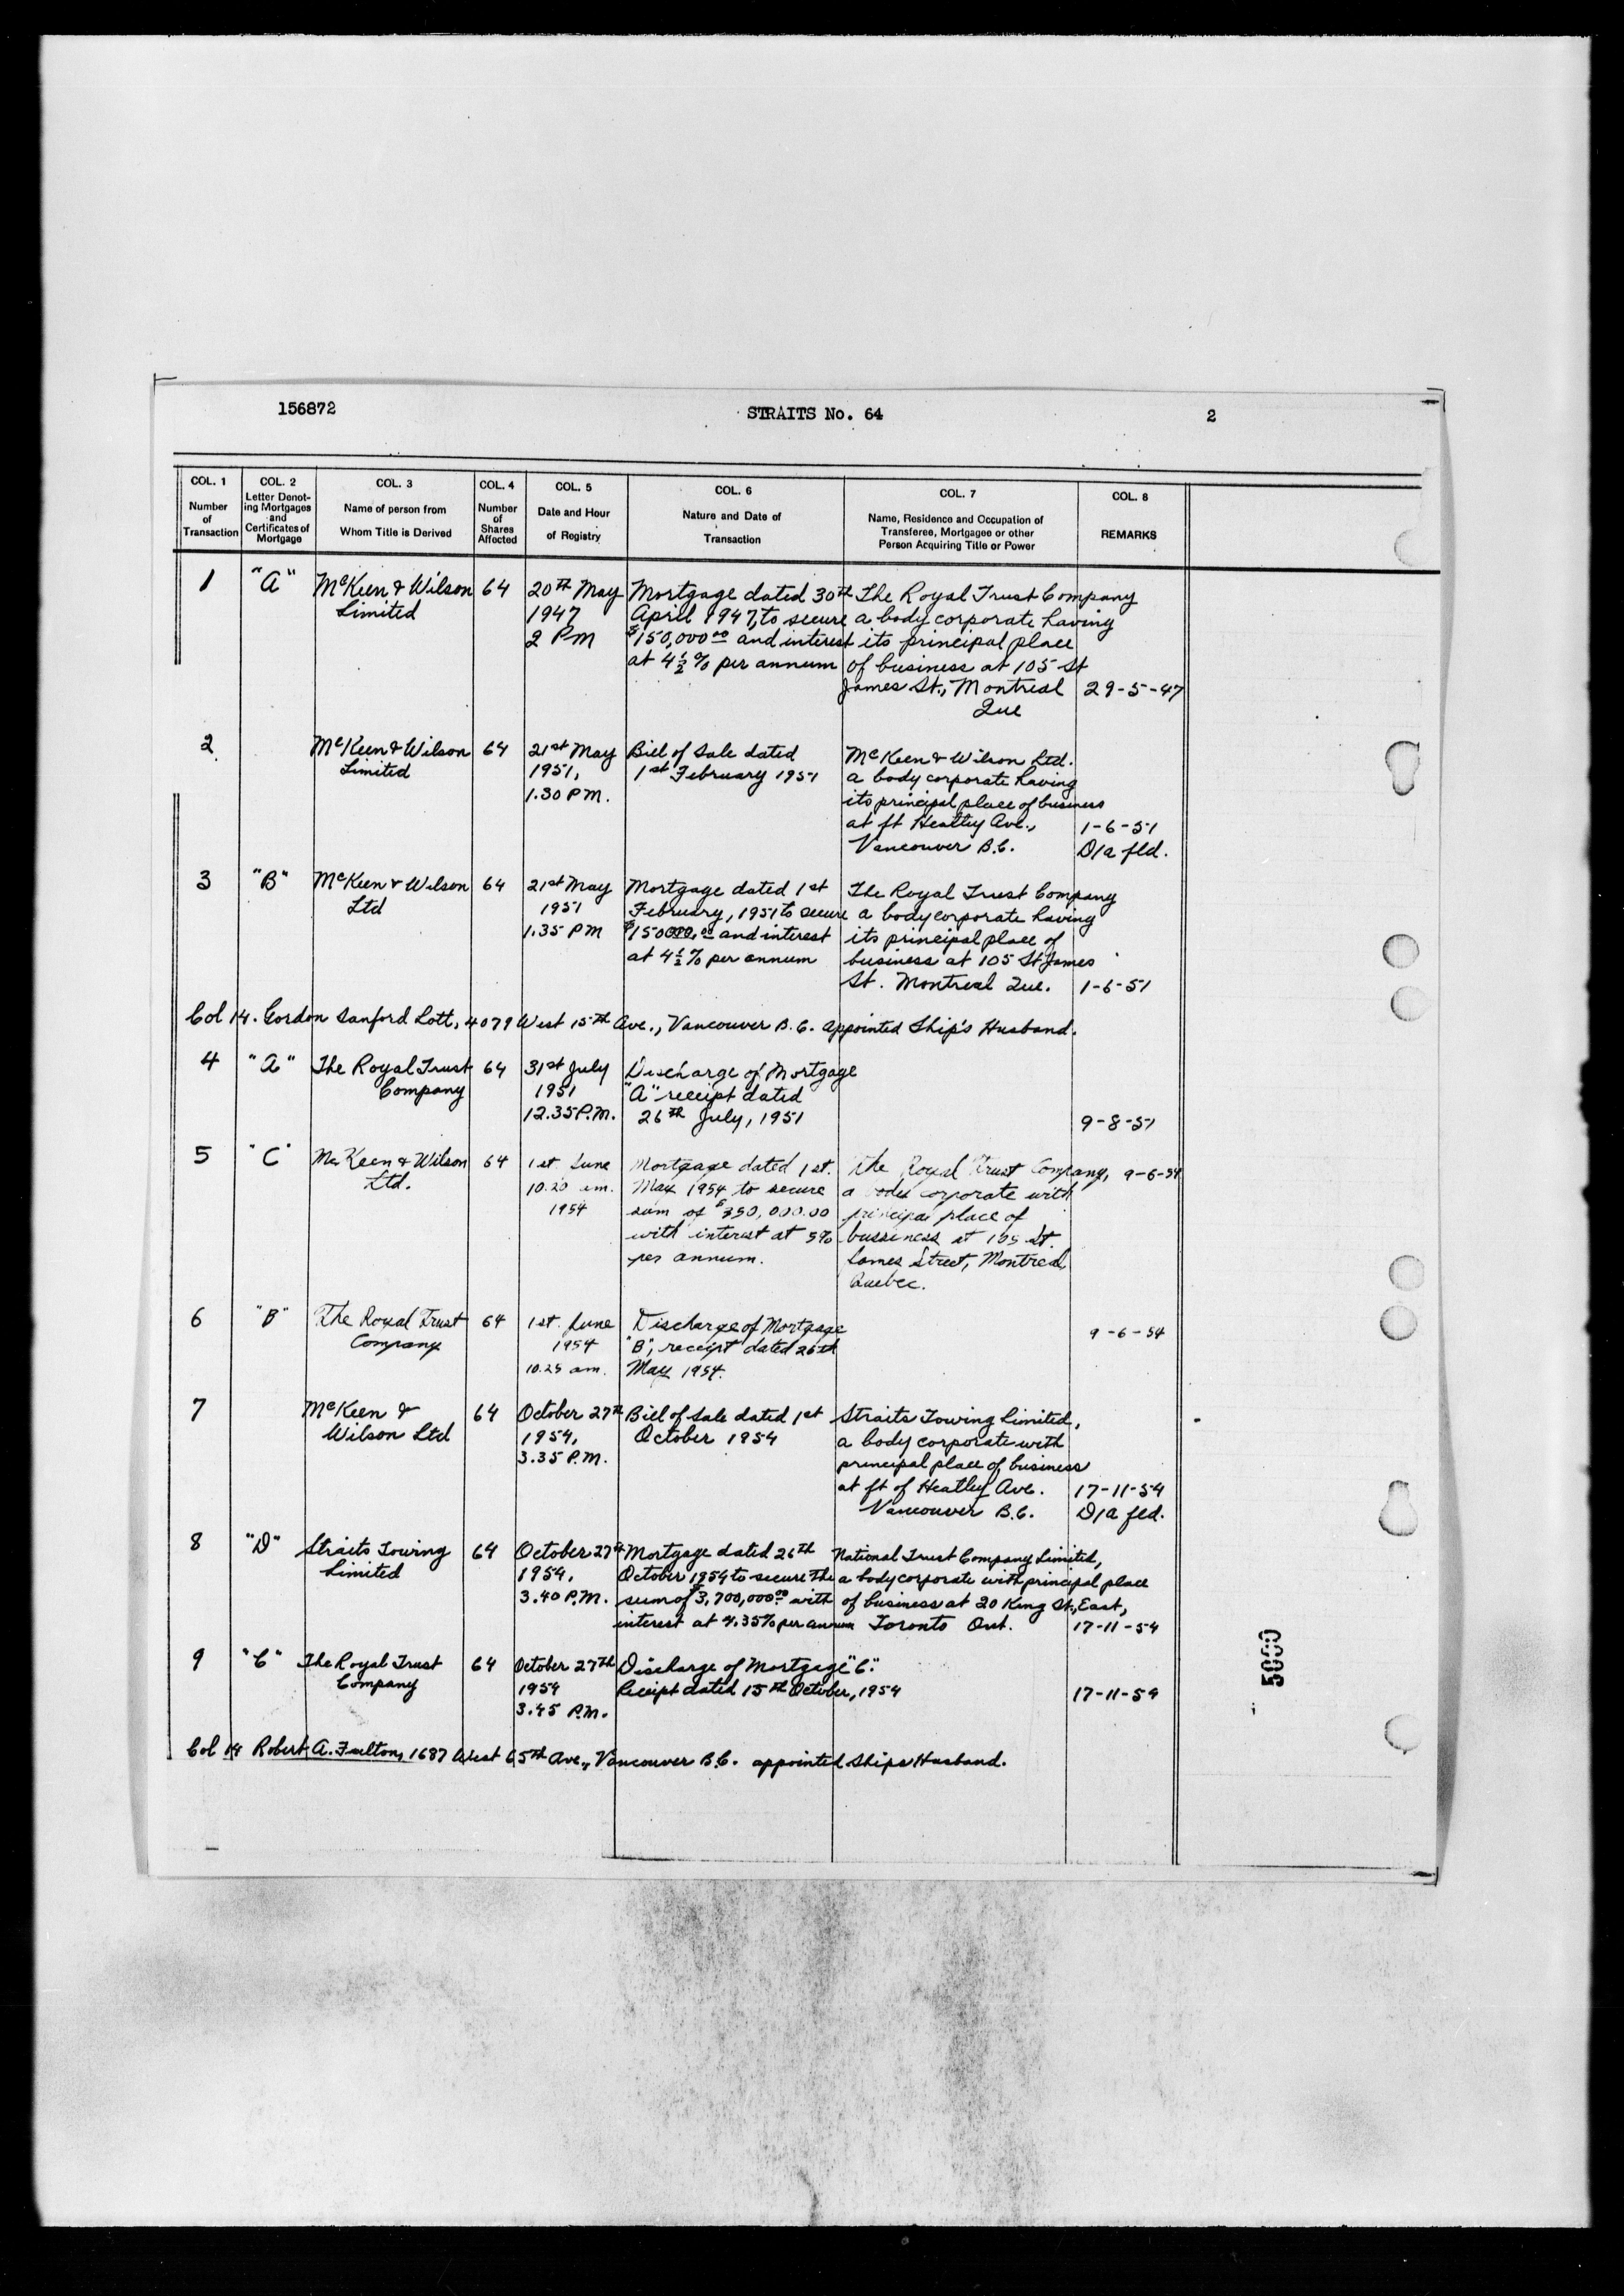 156872 STRAITS No. 64 2
COL. 1 Number of Transaction
COL. 2 Letter Denoting Mortgages and Certificates of Mortgage
COL. 3 Name of person from Whom Title is Derived
COL. 4 Number of Shares Affected
COL. 5 Date and Hour of Registry
COL. 6 Nature and Date of Transaction
COL. 7 Name, Residence and Occupation of Transferee, Mortgagee or other Person Acquiring Title or Power
COL. 8 REMARKS
1 "A" McKeen & Wilson 64 20th May Mortgage dated 30th The Royal Trust Company
Limited 1947 April 1947, to secure a body corporate having
2 PM $150,000.00 and interest its principal place
at 4½% per annum of business at 105 St
James St., Montreal 29-5-47
Que
2 McKeen & Wilson 64 21st May Bill of Sale dated McKeen & Wilson Ltd.
Limited 1951, 1st February 1951 a body corporate having
1.30 PM. its principal place of business
at ft Heatley Ave., 1-6-51
Vancouver B.C. D/a fld.
3 "B" McKeen & Wilson 64 21st May Mortgage dated 1st The Royal Trust Company
Ltd 1951 February, 1951 to secure a body corporate having
1.35 PM $150000.00 and interest its principal place of
at 4½% per annum business at 105 St James
St. Montreal Que. 1-6-51
Col 14. Gordon Sanford Lott, 4079 West 15th Ave., Vancouver B.C. appointed Ship's Husband.
4 "A" The Royal Trust 64 31st July Discharge of Mortgage
Company 1951 "A" receipt dated
12.35 P.M. 26th July, 1951 9-8-51
5 "C" McKeen & Wilson 64 1st June Mortgage dated 1st. The Royal Trust Company, 9-6-54
Ltd. 10.20 am. May 1954 to secure a body corporate with
1954 sum of $350,000.00 principal place of
with interest at 5% bussiness at 105 St.
per annum. James Street, Montreal,
Quebec.
6 "B" The Royal Trust 64 1st. June Discharge of Mortgage 9-6-54
Company 1954 "B", receipt dated 26th
10.25 am. May 1954.
7 McKeen & 64 October 27th Bill of Sale dated 1st Straits Towing Limited,
Wilson Ltd 1954, October 1954 a body corporate with
3.35 P.M. principal place of business
at ft of Heatley Ave. 17-11-54
Vancouver B.C. D/a fld.
8 "D" Straits Towing 64 October 27th Mortgage dated 26th National Trust Company Limited,
Limited 1954, October 1954 to secure the a body corporate with principal place
3.40 P.M. sum of $3,700,000.00 with of business at 20 King St., East,
interest at 4.35% per annum Toronto Ont. 17-11-54
9 "C" The Royal Trust 64 October 27th Discharge of Mortgage "C".
Company 1954 Receipt dated 15th October, 1954 17-11-54
3.45 P.M.
Col 14 Robert A. Fulton, 1687 West 65th Ave., Vancouver B.C. appointed Ships Husband.
5000